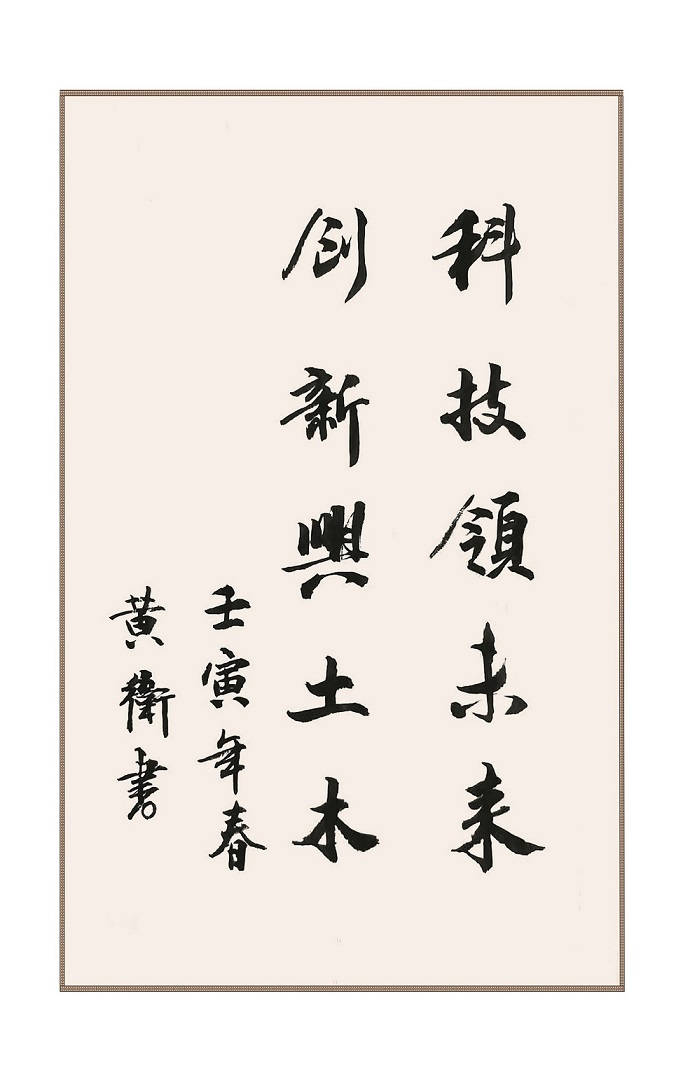 科技領未来
创新興土木
壬寅年春
黄衛書